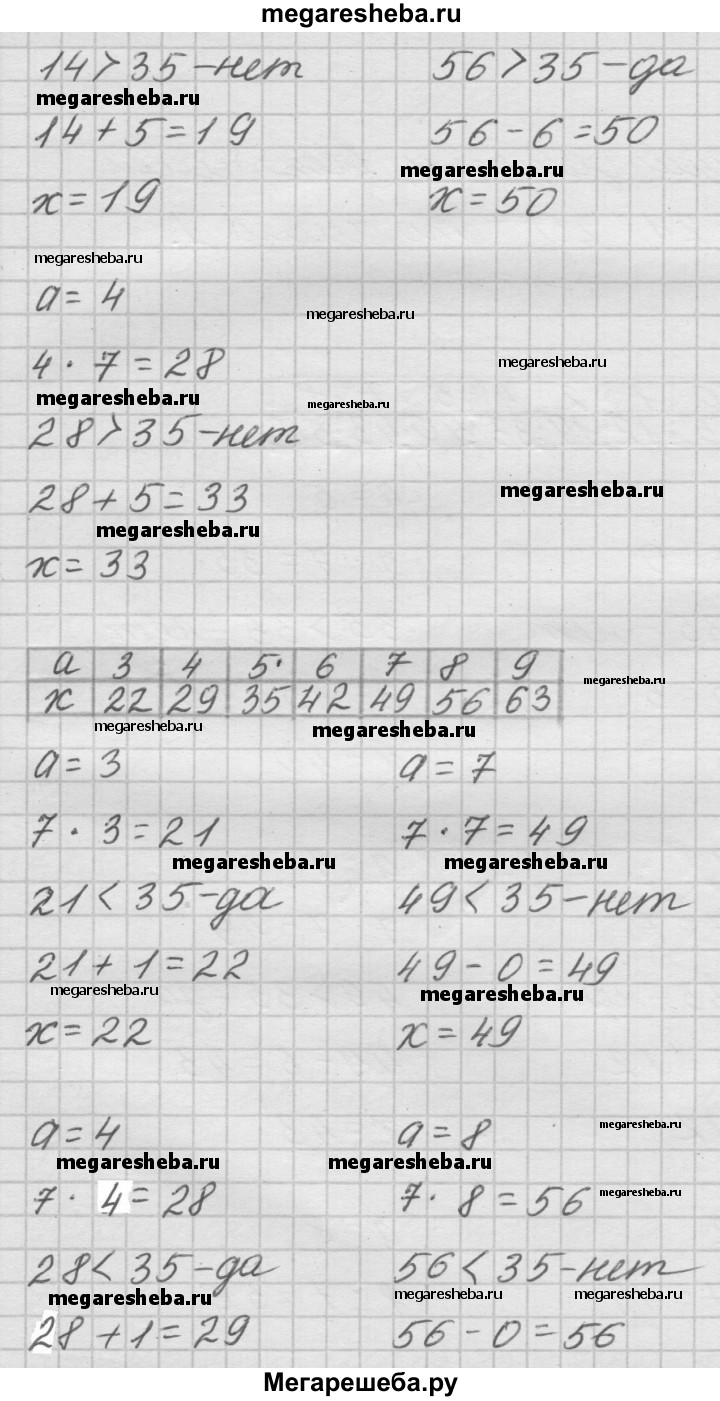 megaresheba.ru
14 > 35 - нет 56 > 35 - да
megaresheba.ru
14 + 5 = 19 56 - 6 = 50
megaresheba.ru
x = 19 x = 50
megaresheba.ru
a = 4
megaresheba.ru
4 · 7 = 28
megaresheba.ru
megaresheba.ru
megaresheba.ru
28 > 35 - нет
28 + 5 = 33
megaresheba.ru
megaresheba.ru
x = 33
a 3 4 5· 6 7 8 9
megaresheba.ru
x 22 29 35 42 49 56 63
megaresheba.ru
megaresheba.ru
a = 3 a = 7
7 · 3 = 21 7 · 7 = 49
megaresheba.ru megaresheba.ru
21 < 35 - да 49 < 35 - нет
21 + 1 = 22 49 - 0 = 49
megaresheba.ru megaresheba.ru
x = 22 x = 49
a = 4 a = 8
megaresheba.ru
megaresheba.ru megaresheba.ru
7 · 4 = 28 7 · 8 = 56
megaresheba.ru
28 < 35 - да 56 < 35 - нет
megaresheba.ru megaresheba.ru megaresheba.ru
28 + 1 = 29 56 - 0 = 56
Мегарешеба.ру